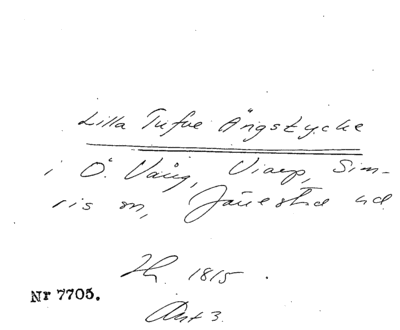 Lilla Tufve Ängstycke
i Ö. Vång, Viarp, Sim-
ris sn, Järrestad hd
Hs. 1815.
Nr 7705.
Akt 3.